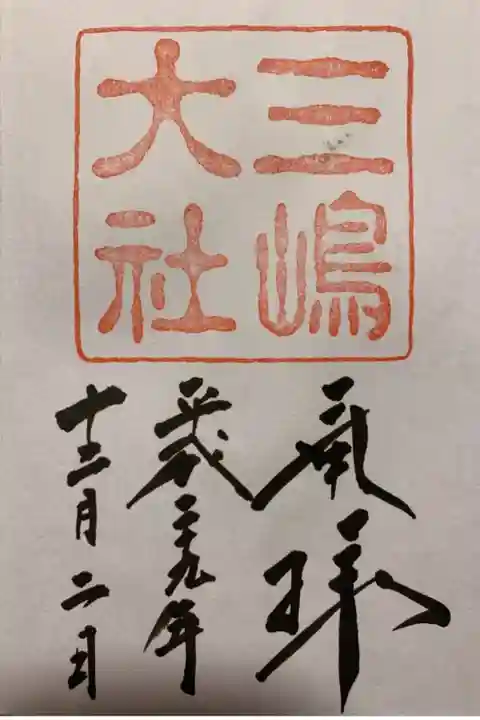 三嶋
大社
奉拝
平成二十九年
十二月二日